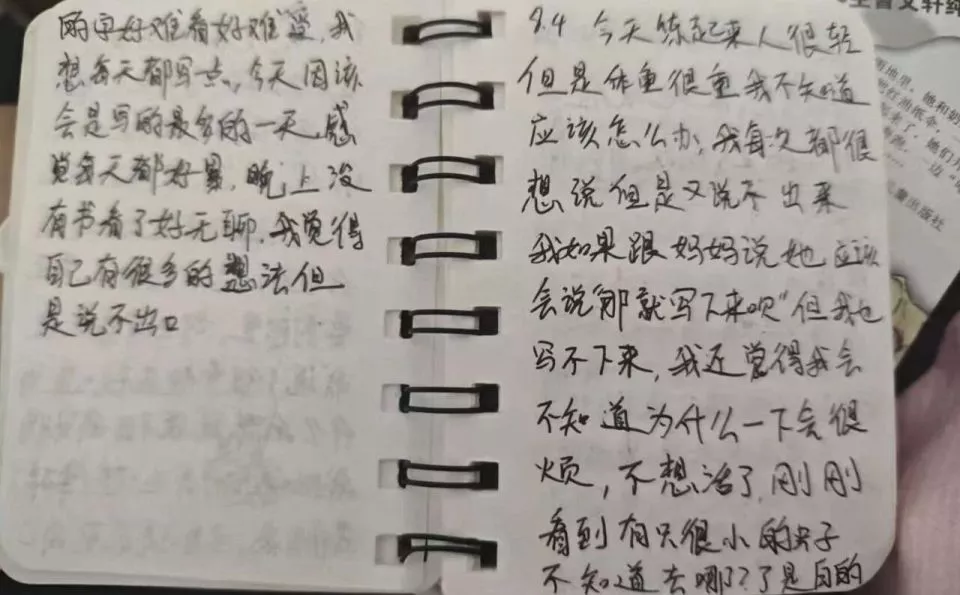 的字好难看好难受,我
想每天都写一点,今天因该
会是写的最多的一天,感
觉每天都好累,晚上没
有书看了好无聊,我觉得
自己有很多的想法但
是说不出口
8.4 今天练起来人很轻
但是体重很重我不知道
应该怎么办,我每次都很
想说但是又说不出来
我如果跟妈妈说她应该
会说“那就写下来呗”但我也
写不下来,我还觉得我会
不知道为什么一下会很
烦,不想活了,刚刚
看到有只很小的
不知道去哪了是白的
文轩
她和奶
童出版社